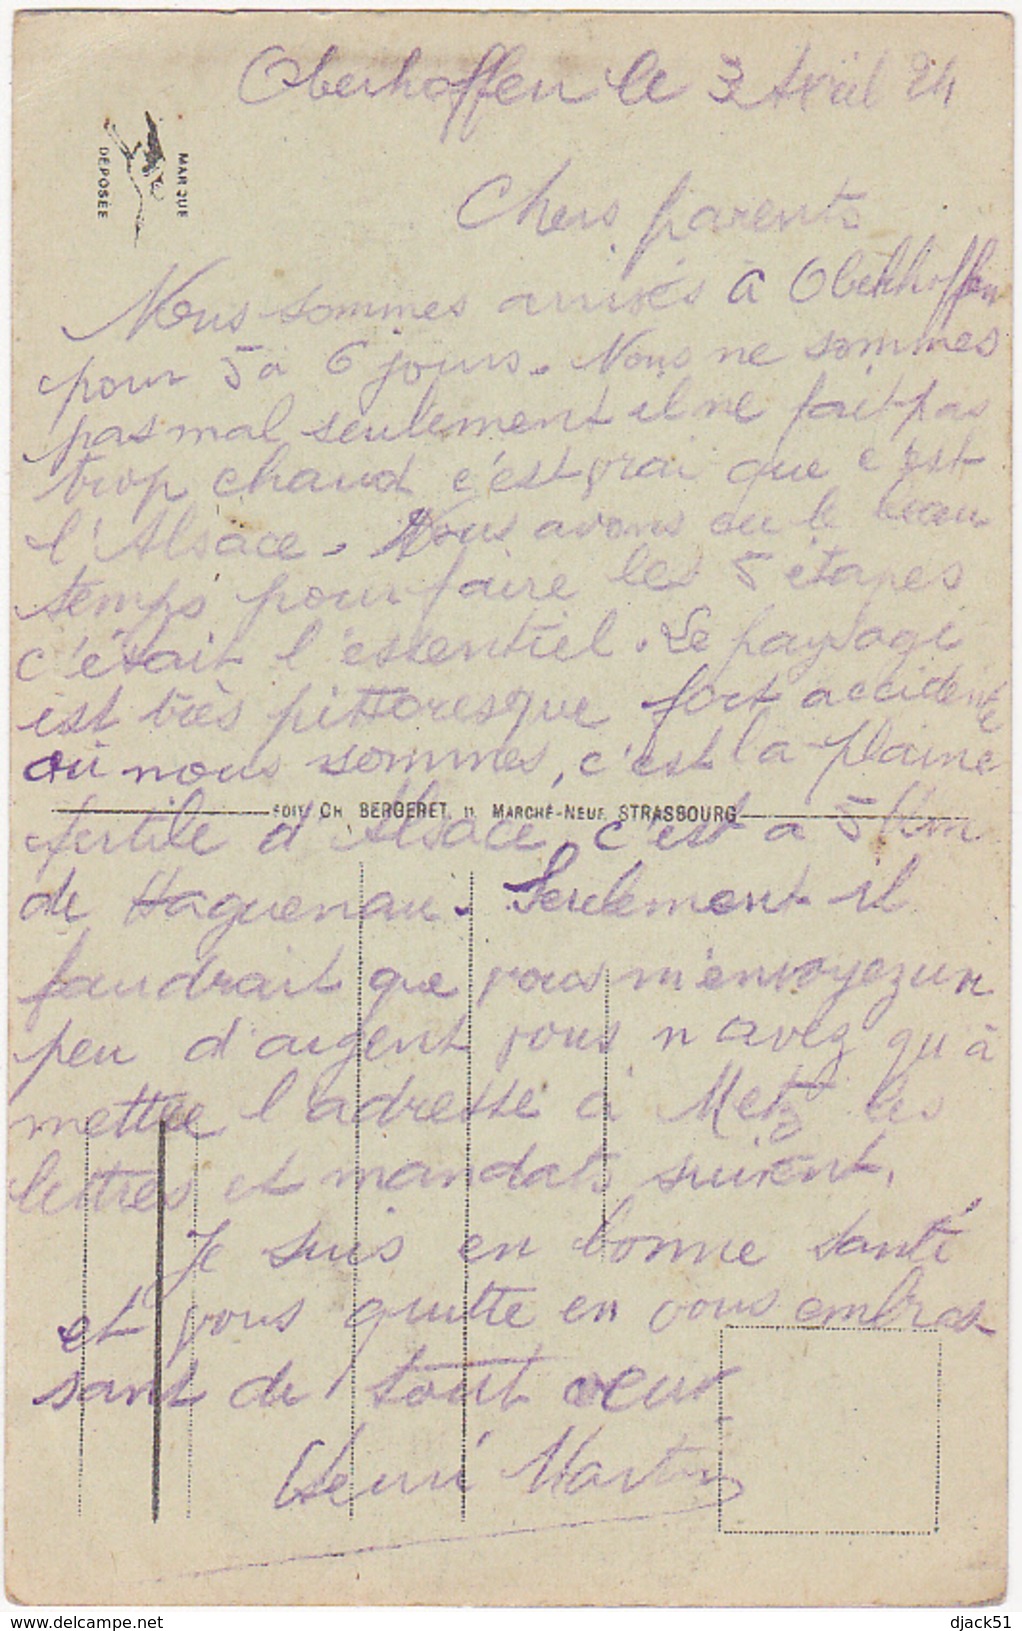 Oberhoffen le 3 Avril 24
MARQUE
DÉPOSÉE
Chers parents
Nous sommes arrivés à Oberhoffen
pour 5 à 6 jours. Nous ne sommes
pas mal seulement il ne fait pas
trop chaud c'est vrai que c'est
l'Alsace. Nous avons eu le beau
temps pour faire les 5 étapes
c'était l'essentiel. Le paysage
est très pittoresque fort accidenté
où nous sommes, c'est la plaine
EDIT. CH. BERGERET, 11 MARCHÉ-NEUF, STRASBOURG
fertile d'Alsace, c'est à 5 Km
de Haguenau. Seulement il
faudrait que vous m'envoyez un
peu d'argent vous n'avez qu'à
mettre l'adresse à Metz les
lettres et mandats suivent.
Je suis en bonne santé
et vous quitte en vous embras
sant de tout cœur
Henri Martin
djack51